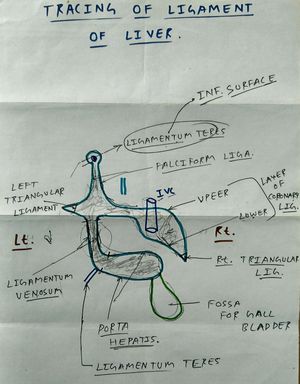 TRACING OF LIGAMENT
OF LIVER.
INF. SURFACE
LIGAMENTUM TERES
FALCIFORM LIGA.
LEFT
TRIANGULAR
LIGAMENT
IVC
UPPER
LAYER OF
CORONARY
LIG.
LOWER
Lt.
Rt.
Rt. TRIANGULAR
LIG.
LIGAMENTUM
VENOSUM
FOSSA
FOR GALL
BLADDER
PORTA
HEPATIS.
LIGAMENTUM TERES